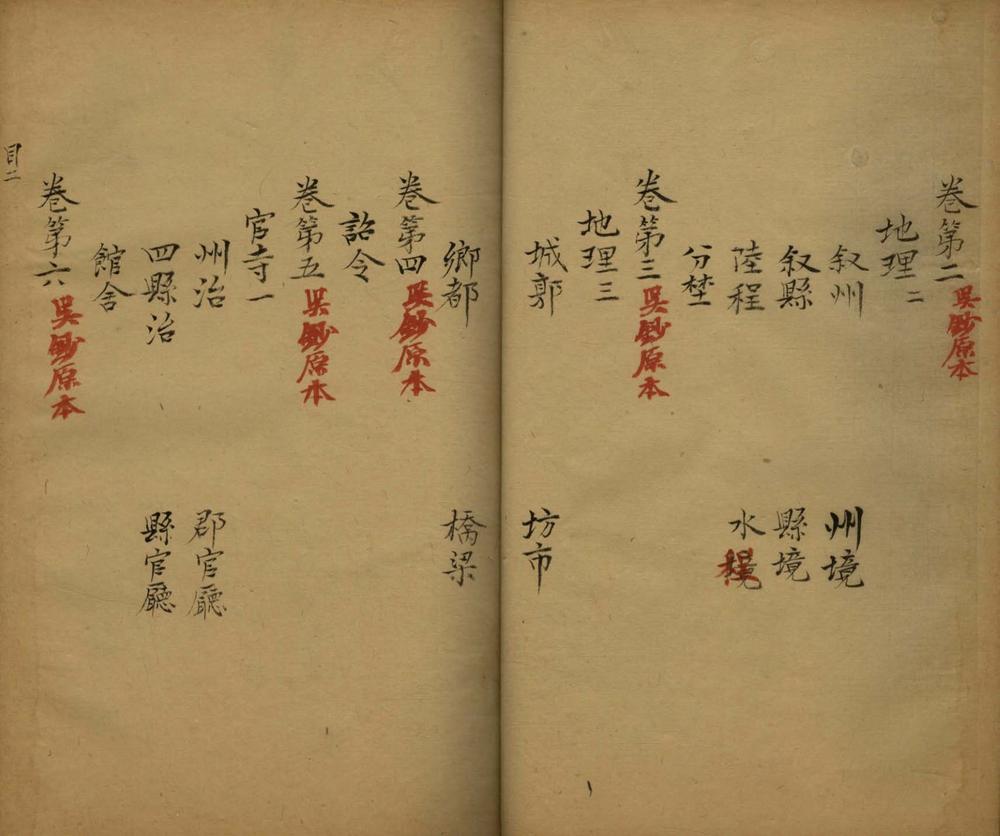 卷第二 吳鈔原本
地理二
叙州 州境
叙縣 縣境
陸程 水程
分埜
卷第三 吳鈔原本
地理三
城郭 坊市
鄉都 橋梁
卷第四 吳鈔原本
詔令
卷第五 吳鈔原本
官寺一
州治 郡官廳
四縣治 縣官廳
館舍
卷第六 吳鈔原本
目二